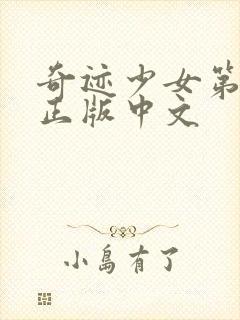 奇迹少女第
正版中文
小島有了